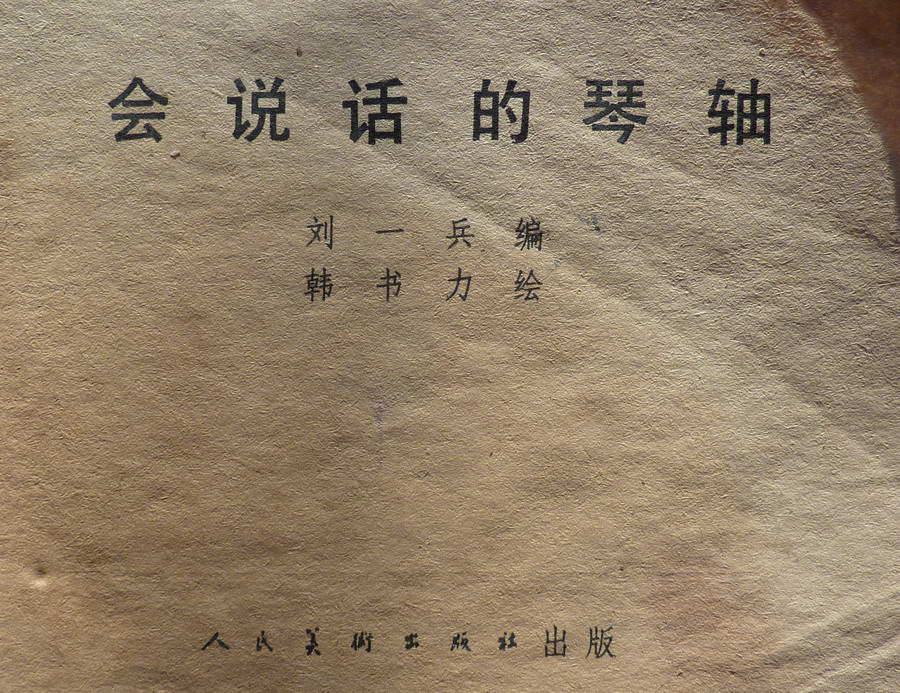 会说话的琴轴
刘一兵编
韩书力绘
人民美术出版社出版